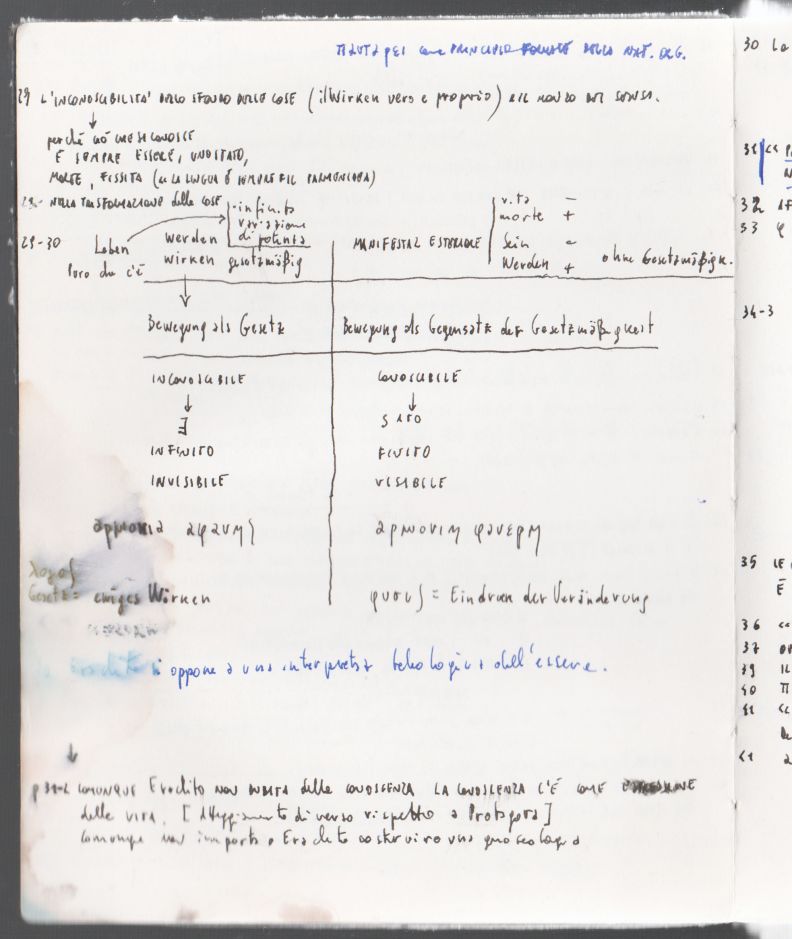 παντα ρει come PRINCIPIO FORMALE DELLA NAT. ORG.
29 L'INCONOSCIBILITÀ DELLO SFONDO DELLE COSE (il Wirken vero e proprio) E IL MONDO DEI SENSI.
↓
perché ciò che si conosce
È SEMPRE ESSERE, UNO STATO,
MORTE, FISSITÀ (E LA LINGUA È SEMPRE FIL PARMENIDEA)
29- NELLA TRASFORMAZIONE delle COSE
-infinita
variazione
di potenza
vita −
morte +
29-30 Leben
Puro che c'è
werden
wirken gesetzmäßig
MANIFESTAZ ESTERIORE
Sein −
Werden + ohne Gesetzmäßigk.
↓
Bewegung als Gesetz
Bewegung als Gegensatz der Gesetzmäßigkeit
INCONOSCIBILE
CONOSCIBILE
↓
↓
∃
STATO
INFINITO
FINITO
INVISIBILE
VISIBILE
αρμονια αφανης
αρμονιη φανερη
λογος
Gesetz = ewiges Wirken
φυσις = Eindruck der Veränderung
Eraclito si oppone a una interpretaz teleologica dell'essere.
↓
p 31-2 COMUNQUE Eraclito NON DUBITA della CONOSCENZA LA CONOSCENZA C'È COME ESPRESSIONE
della VITA. [Atteggiamento diverso rispetto a Protagora]
Comunque non importa a Eraclito costruire una gnoseologia
30 La
31 <<
32
33 φ
34-3
35 LE
È
36 <<
37
39 IL
40 Π
41 <<
41